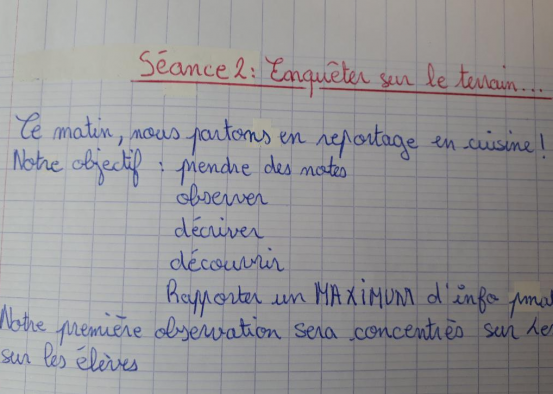 Séance 2: Enquêter sur le terrain...
Ce matin, nous partons en reportage en cuisine!
Notre objectif : prendre des notes
observer
décriver
découvrir
Rapporter un MAXiMUM d'info
Notre première observation sera concentrés sur
sur les élèves